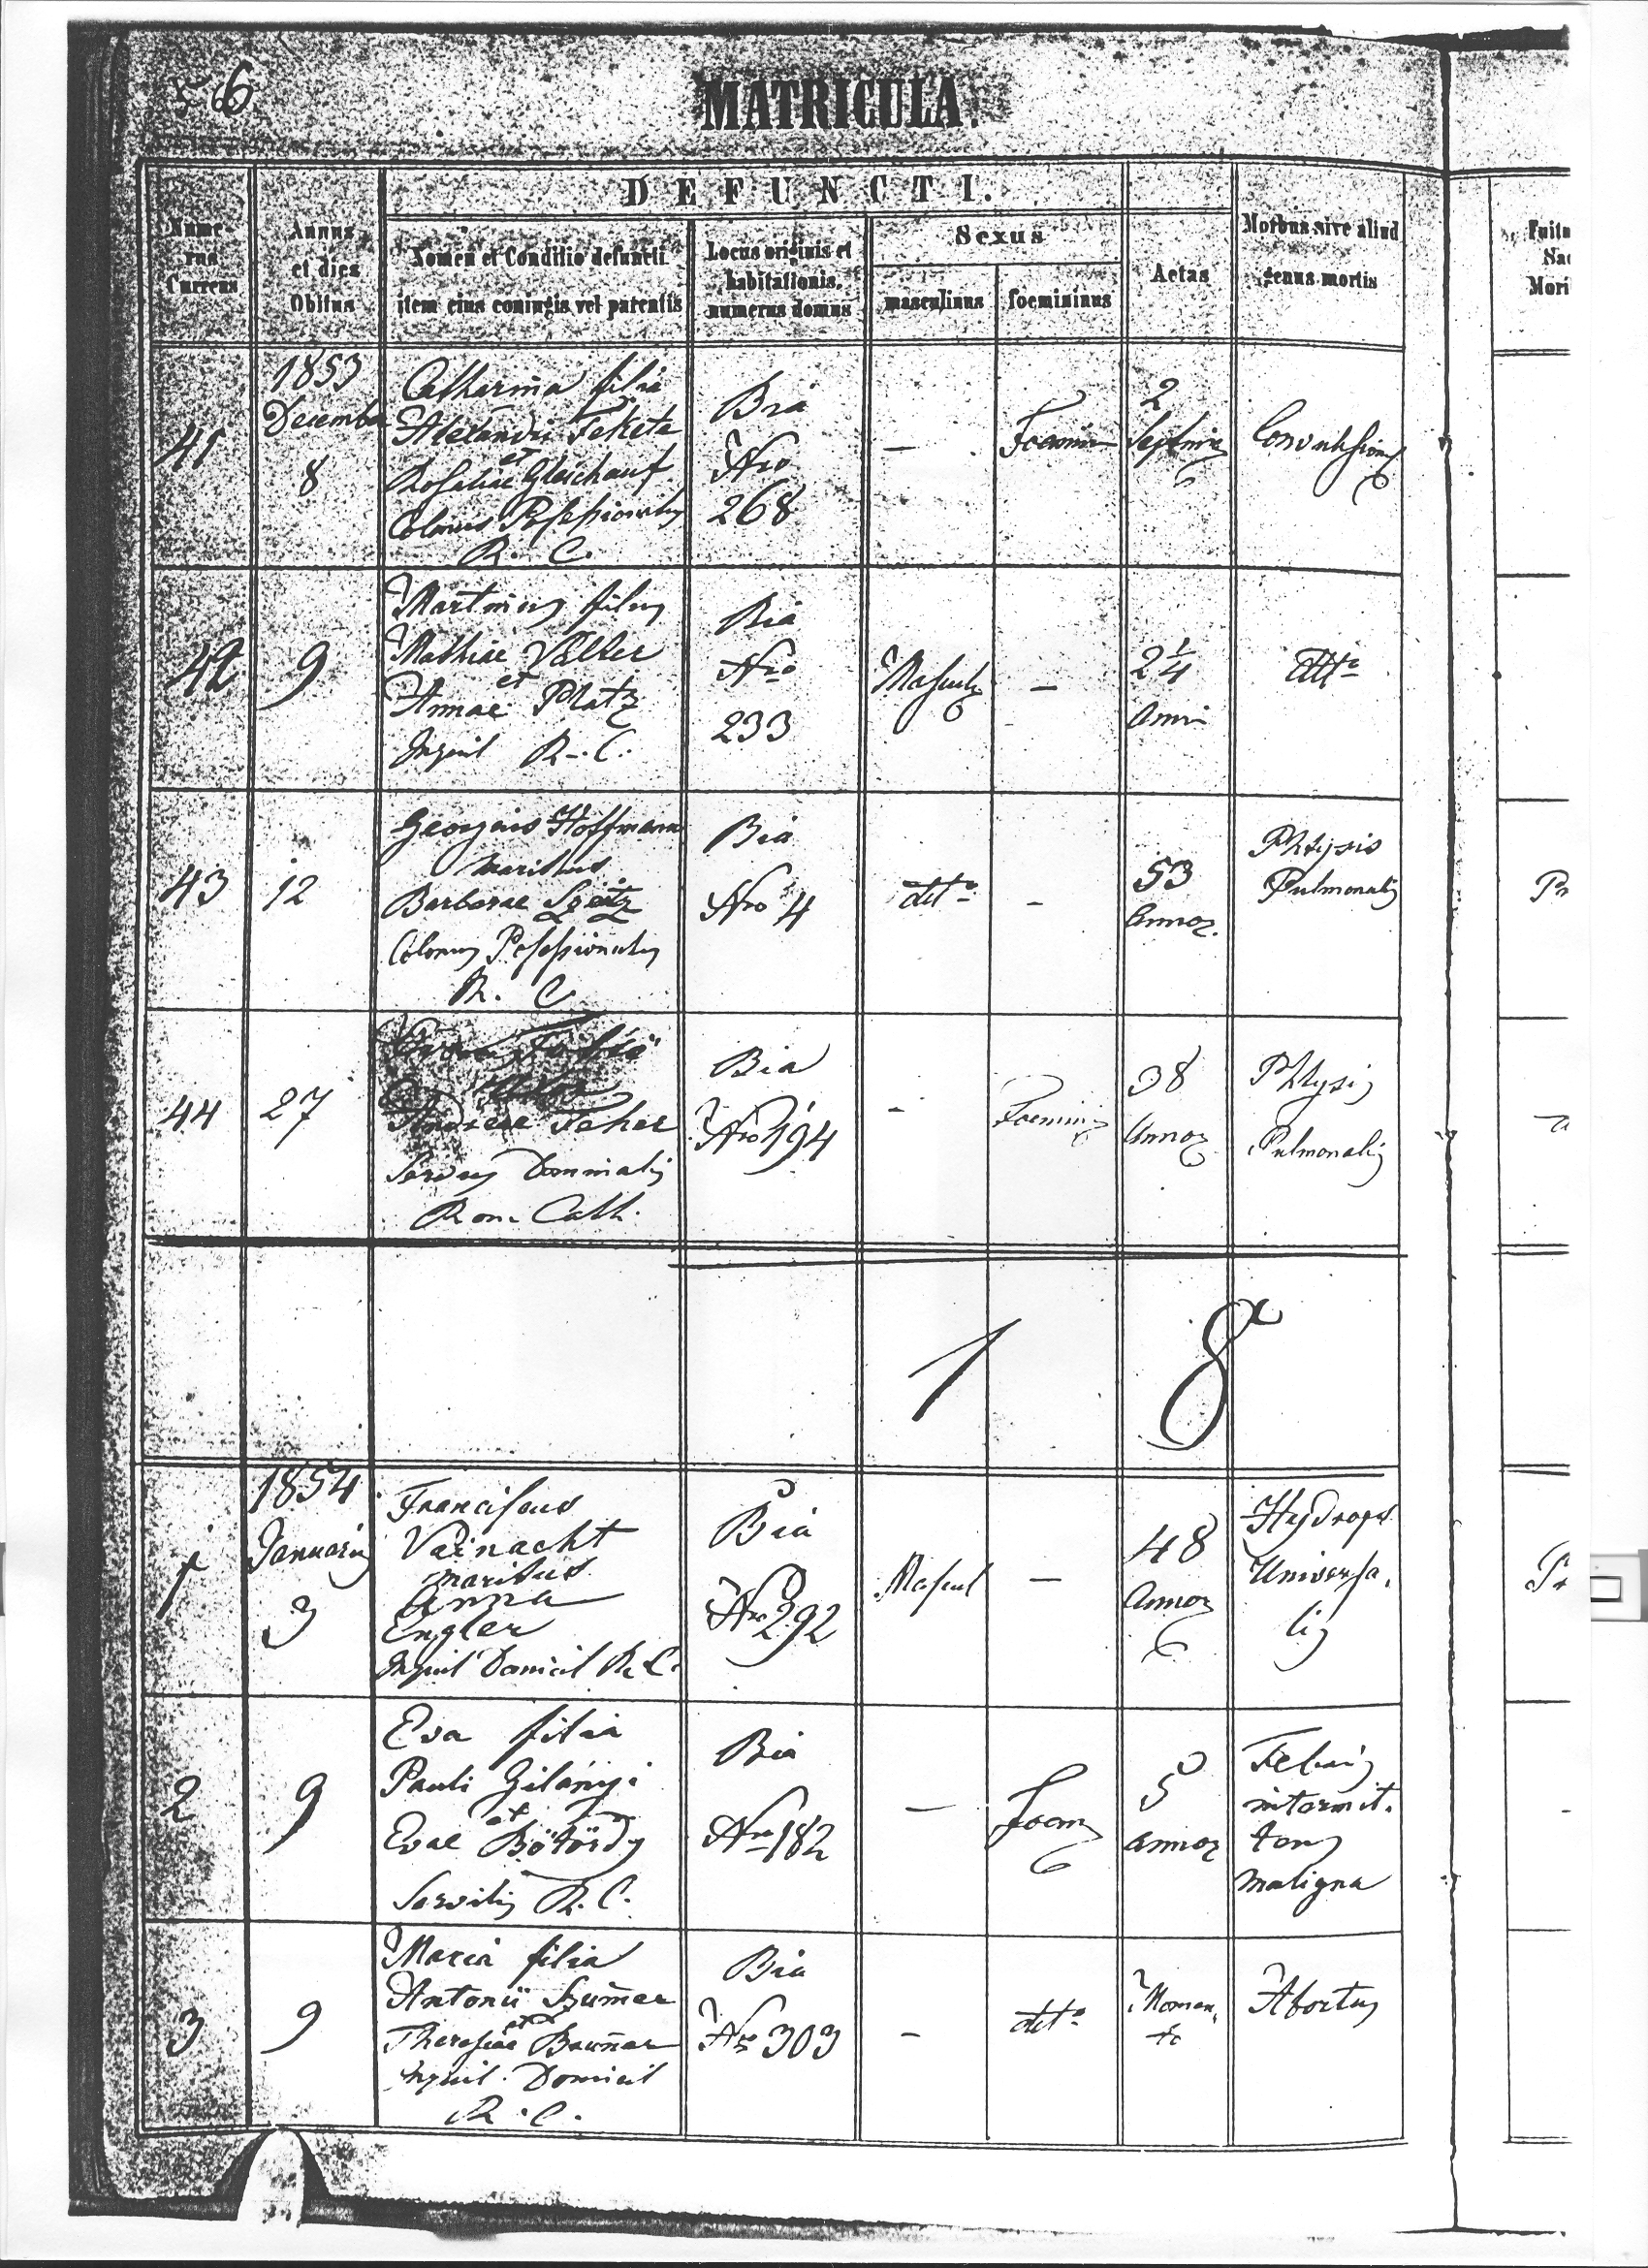 56
MATRICULA.
DEFUNCTI.
Nume-
rus
Currens
Annus
et dies
Obitus
Nomen et Conditio defuncti
item eius coniugis vel parentis
Locus originis et
habitationis,
numerus domus
Sexus
masculinus
foemininus
Aetas
Morbus sive aliud
genus mortis
41
1853
December
8
Catharina filia
Alexandri Fekete
et
Rosaliae Gleichauf
Colonus
R. C.
Bia
Nro
268
—
2
42
9
Martinus filius
Mathiae Valter
et
Annae Platz
Inquil R. C.
Bia
Nro
233
Mascul
—
2 1/4
Anni
dtto
43
12
Georgius Hoffmann
maritus
Barbarae
Colonus
R. C.
Bia
Nro 4
dtto
—
53
Annor.
Phtysis
Pulmonalis
44
27
Andreae Feher
Servus Dominalis
Rom. Cath.
Bia
Nro 194
-
38
Annor
Phtysis
Pulmonalis
1 8
1
1854
Januarius
3
Franciscus
Vainacht
maritus
Anna
Engler
Inquil Domicil R. C.
Bia
Nro 292
Mascul
—
48
Annor
Hydrops
Universa-
lis
2
9
Eva filia
Pauli Gilányi
et
Evae
Servilis R. C.
Bia
Nro 182
—
Foem
5
annor
Febris
intermit-
tens
maligna
3
9
Maria filia
Antonii
et
Theresiae
Inquil. Domicil
R. C.
Bia
Nro 303
-
dtto
Momen-
to
Abortus